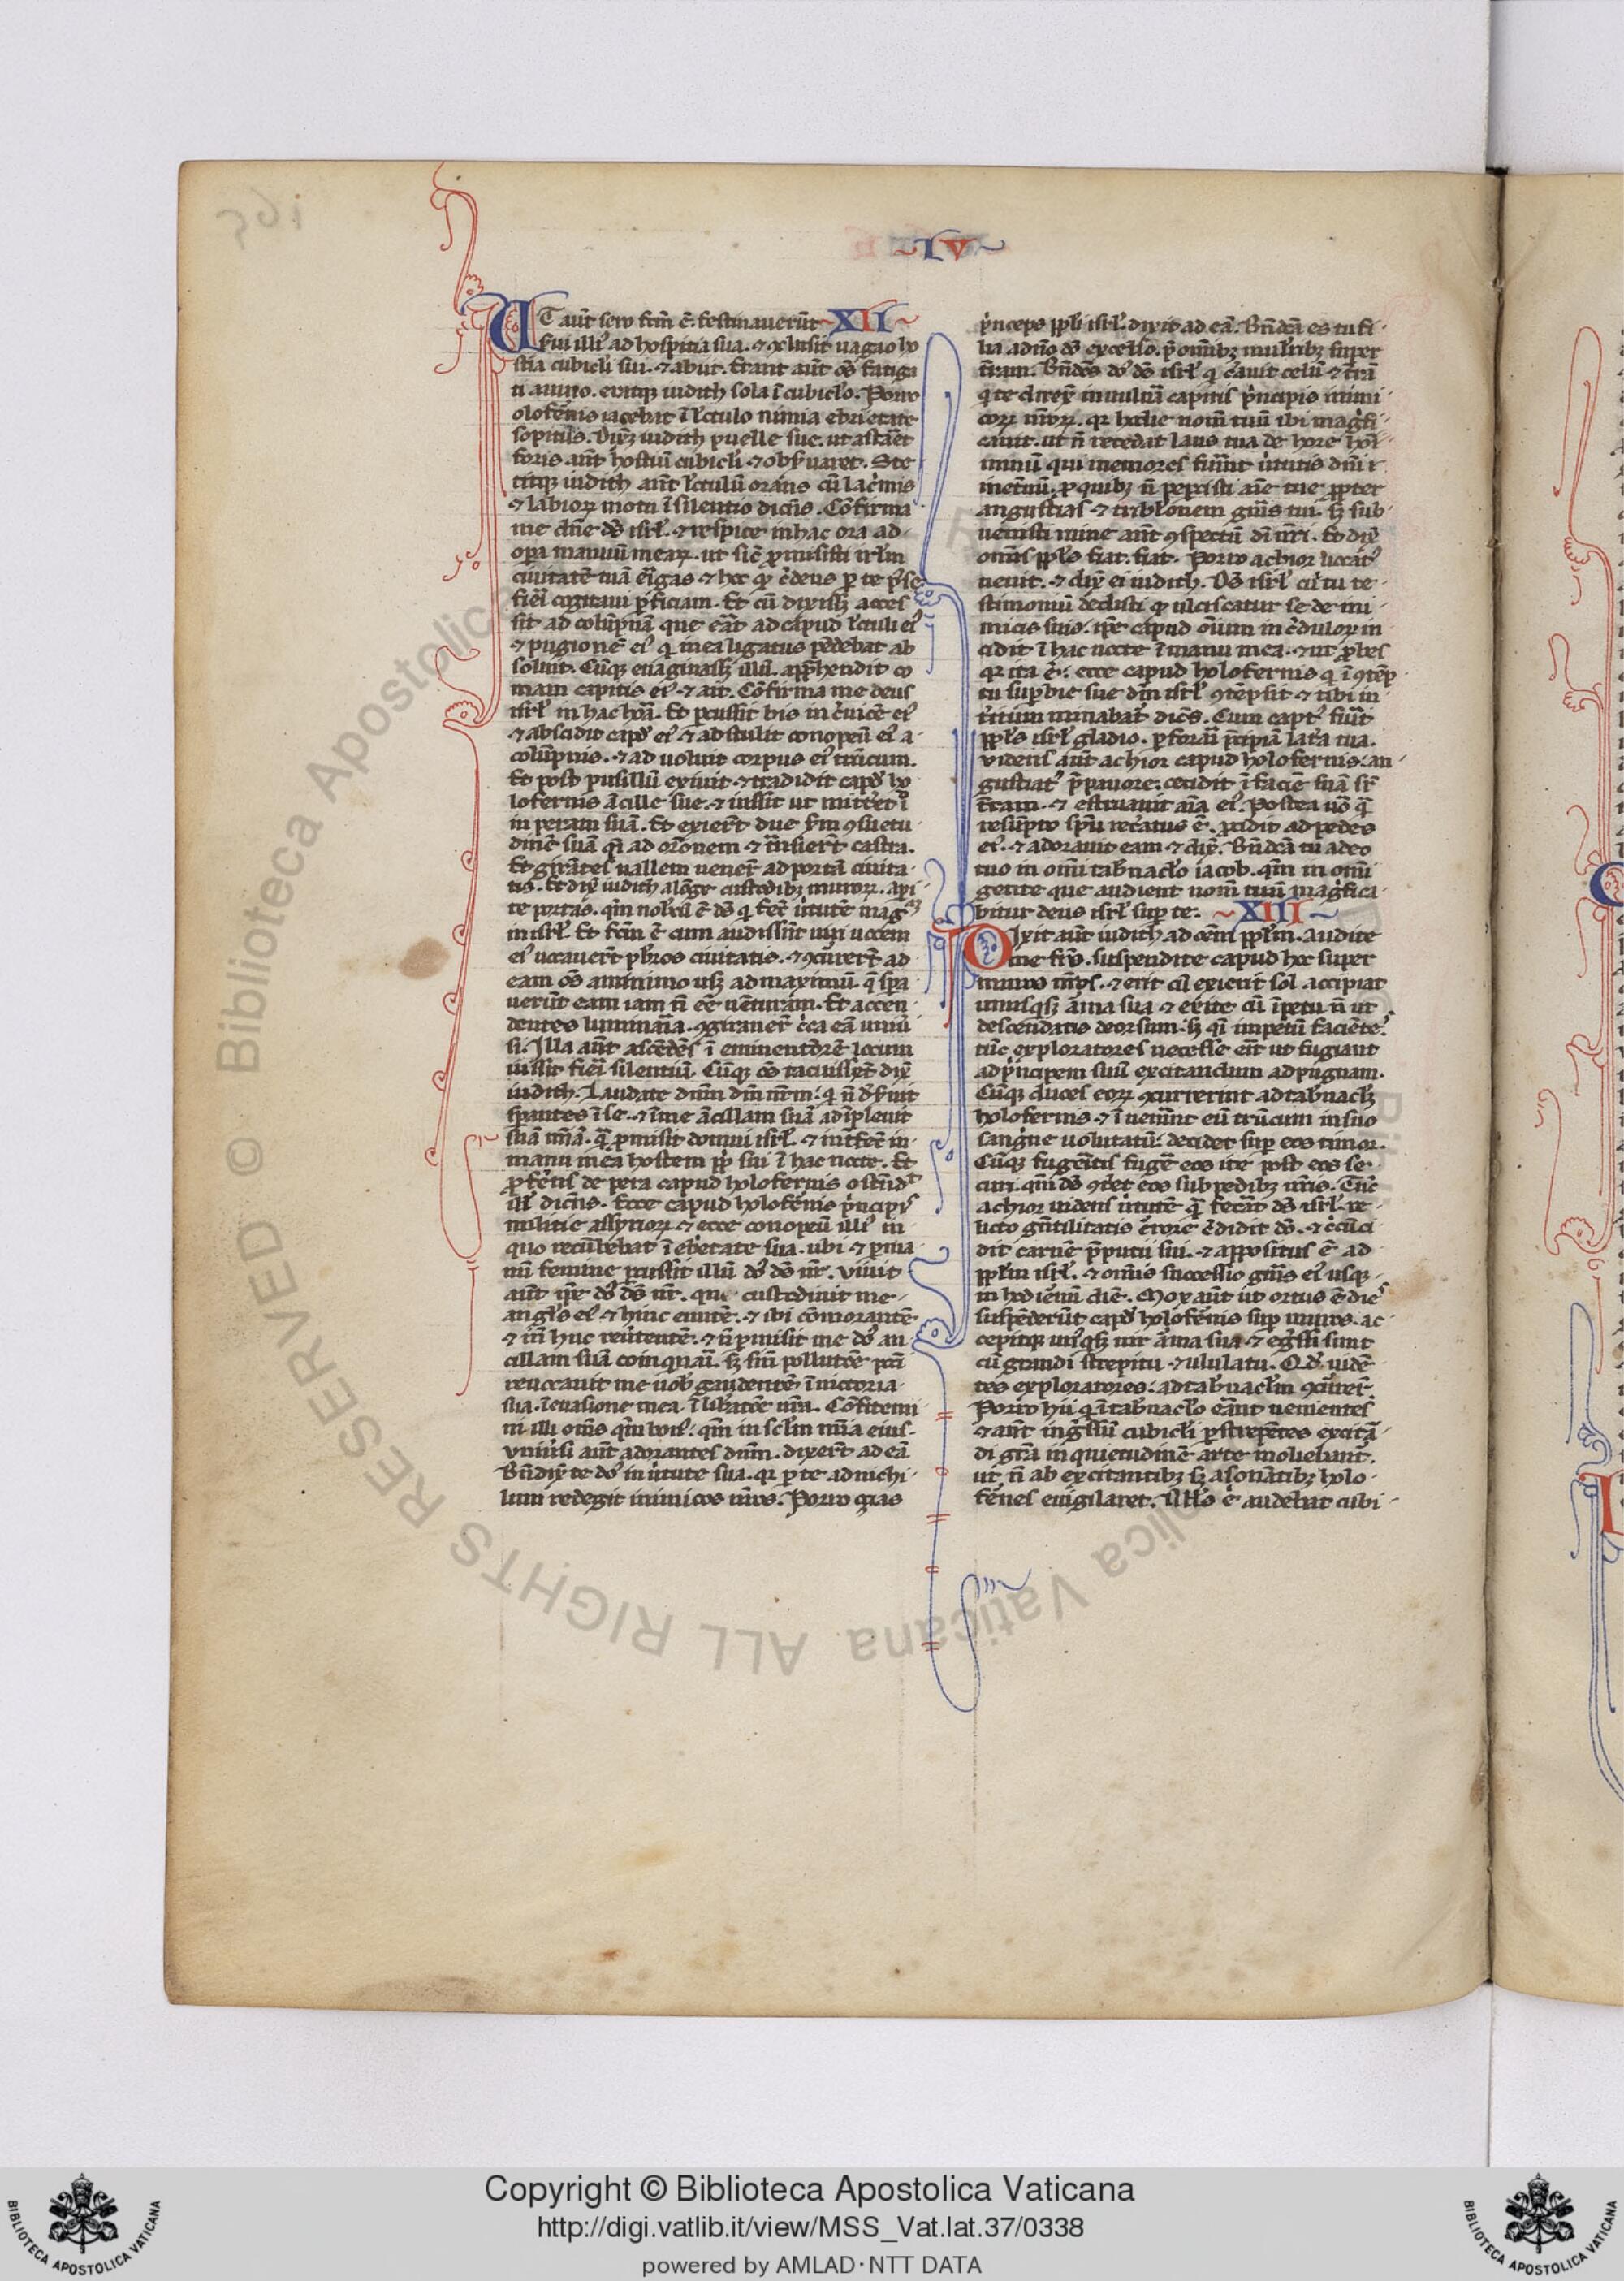 LV
UT aut̄ sero fcm̄ ē. festinauerūt XII
ſui illiꝰ ad hospitia sua. ⁊ ꝯclusit uagao ho
stia cubicli sui. ⁊ abiit. Erant aūt oēs fatiga
ti a uino. eratqꝫ iudith sola ī cubiclo. Porro
olofernis iacebat ī lectulo nimia ebrietate
sopitus. Dixitqꝫ iudith puelle sue. ut astaret
foris ante hostiū cubicli ⁊ obseruaret. Ste
titqꝫ iudith ante lectulū orans cū lacrimis
⁊ labioꝝ motu ī silentio dicēs. Cōfirma
me dn̄e ds̄ isrl̄. ⁊ respice in hac ora ad
opera manuū meaꝝ. ut sic̄ ꝓmisisti irl̄m
ciuitatē tuā erigas ⁊ hoc qđ credens ꝑ te posse
fieri cogitaui ꝑficiam. Et cū dixissꝫ acces
sit ad colūpnā que erat ad capud lectuli eiꝰ
⁊ pugionē eiꝰ qi in ea ligatus pēdebat ab
soluit. Cūqꝫ euaginassꝫ illū. apprehendit co
mam capitis eiꝰ ⁊ ait. Cōfirma me deus
isrl̄ in hac hora. Et ꝑcussit bis in ceruicē eiꝰ
⁊ abscidit capđ eiꝰ ⁊ abstulit conopeū eiꝰ a
colūpnis. ⁊ ad uoluit corpus eiꝰ trūcum.
Et post pusillū exiuit ⁊ tradidit capđ ho
lofernis ācille sue. ⁊ iussit ut mitteret ī
in peram suā. Et exierūt due scdm ꝯsuetu
dinē suā qi ad orōnem ⁊ trāsierūt castra.
Et girātes uallem uenerūt ad portā ciuita
tis. Et dix̄ iudith alōge custodibꝫ muroꝝ. api
te portas. qm̄ nobiscū ē ds̄ qi fecit uirtutē magnā
in isrl̄. Et fcm̄ ē cum audissent uiri uocem
eiꝰ uocauerūt pbr̄os ciuitatis. ⁊ ꝯcurrerūt ad
eam oēs a minimo usqꝫ ad maximū. qm̄ spa
uerūt eam iam n̄ eē uēturam. Et accen
dentes luminaria. ꝯgirauer̄ circa eā uniu
si. Illa aūt ascēdēs ī eminentiorē locum
iussit fieri silentiū. Cūqꝫ oēs tacuissent dix̄
iudith. Laudate dn̄m dm̄ nr̄m: qi n̄ deseruit
sperantes ī se. ⁊ ī me ācillam suā adīpleuit
suā mīam. quā ꝓmisit domui isrl̄. ⁊ interfecit in
manu mea hostem ppl̄i sui ī hac nocte. Et
ꝓferens de pera capud holofernis ostēdit
illis dicēs. Ecce capud holofernis principis
militie assyrioꝝ ⁊ ecce conopeū illiꝰ in
quo recūbebat ī ebrietate sua. ubi ⁊ ꝑ ma
nū femine ꝑcussit illū dn̄s ds̄ nr̄. Viuit
aūt ipse dn̄s ds̄ nr̄. qm̄ custodiuit me
angl̄s eiꝰ ⁊ hinc euntē. ⁊ ibi cōmorantē
⁊ īn huc reuertentē. ⁊ n̄ ꝑmisit me dn̄s an
cillam suā coinquari. sꝫ sine pollutōe pccī
reuocauit me uobis gaudentē ī uictoria
sua. ī euasione mea. ī libatōe ura. Cōfitemi
ni illi om̄s qm̄ bonꝰ: qm̄ in sclm̄ mīa eius.
Vniūsi aūt adorantes dn̄m. dixerūt ad eā
Bn̄dix̄ te dn̄s in uirtute sua. qr ꝑ te ad nichi
lum redegit inimicos nr̄os. Porro ozias
princeps ppl̄i isrl̄. dixit ad eā. Bn̄dcā es tu fi
lia. a dn̄o do excelso. p̄ omībꝫ mulieribꝫ super
terram. Bn̄dcs dn̄s ds̄ isrl̄ qi creauit celū ⁊ trā
qi te direx̄ in uulnā capitis principis inimi
coꝝ nr̄oꝝ. qr hodie nom̄ tuū ibi magnifi
cauit. ut n̄ recedat laus tua de hore hoī
minū qui memores fuerint uirtutis dn̄i ī
internū. ꝓ quibꝫ n̄ pepcisti aīe tue ꝓpter
angustias ⁊ tribulōnem gn̄is tui. sꝫ sub
uenisti ruine ante ꝯspectū di nr̄i. Et dix̄
om̄is ppl̄s fiat. fiat. Porro achior uocatꝰ
uenit. ⁊ dix̄ ei iudith. Ds̄ isrl̄ cui tu te
stimoniū dedisti qđ ulciscatur se de ini
micis suis. ipse capud oīum in credulor̄ in
cidit ī hac nocte ī manu mea. ⁊ ut ꝓbes
qr ita ē: ecce capud holofernis qi ī ꝯtēp
tu suꝑbie sue dm̄ isrl̄ ꝯtēpsit ⁊ tibi in
teritum minabatur dicēs. Cum captꝰ fuerit
ppl̄s isrl̄ gladio. ꝑforari p̄cipiā latera tua.
Videns aūt achior capud holofernis: an
gustiatꝰ p̄ pauore: cecidit ī faciē suā sr̄
terram. ⁊ estuauit aīa eiꝰ. Postea uo qm̄
resūpto spū recreatus ē. ꝓcidit ad pedes
eiꝰ. ⁊ adorauit eam ⁊ dix̄. Bn̄dcā tu a deo
tuo in omī tabernaclo iacob. qm̄ in omī
gente que audierit nom̄ tuū magnifica
bitur deus isrl̄ suꝑ te. XIII
DIxit aūt iudith ad oēm ppl̄m. Audite
me frēs. suspendite capud hoc super
muros nr̄os. ⁊ erit cū exierit sol accipiat
unusqꝫ arma sua ⁊ exite cū īpetu n̄ ut
descendatis deorsum: sꝫ qi impetū faciētes.
tūc exploratores necesse erit ut fugiant
ad principem suū excitandum ad pugnam.
Cūqꝫ duces eoꝝ ꝯcurrerint ad tabnaclꝫ
holofernis ⁊ ī uenerint eū trūcum in suo
sangine uolutatū: decidet suꝑ eos timor.
Cūqꝫ fugeritis fugere eos ite post eos se
curi. qm̄ ds̄ ꝯteret eos sub pedibꝫ uris. Tūc
achior uidens uirtutē quā fecerat ds̄ isrl̄. re
licto gētilitatis errore credidit do. ⁊ circūci
dit carnē p̄putii sui. ⁊ appositus ē ad
ppl̄m isrl̄. ⁊ om̄is successio gn̄is eiꝰ usqꝫ
in hodiernū diē. Mox aūt ut ortus ē dies
suspēderūt capđ holofernis suꝑ muros. ac
cepitqꝫ unusqꝫ uir arma sua ⁊ egressi sunt
cū grandi strepitu ⁊ ululatu. Qđ uidē
tes exploratores: ad tabnaclm̄ ꝯcurrer̄t.
Porro hii qi ī tabernaclo erant uenientes
⁊ ante ingressū cubicli ꝑstrepētes excitā
di grā inquietudinē arte moliebant.
ut n̄ ab excitantibꝫ sꝫ a sonātibꝫ holo
fernes euigilaret. Nullꝰ ē audebat cubi
© Biblioteca Apostolica Vaticana ALL RIGHTS RESERVED
Copyright © Biblioteca Apostolica Vaticana
http://digi.vatlib.it/view/MSS_Vat.lat.37/0338
powered by AMLAD·NTT DATA
BIBLIOTECA APOSTOLICA VATICANA
BIBLIOTECA APOSTOLICA VATICANA